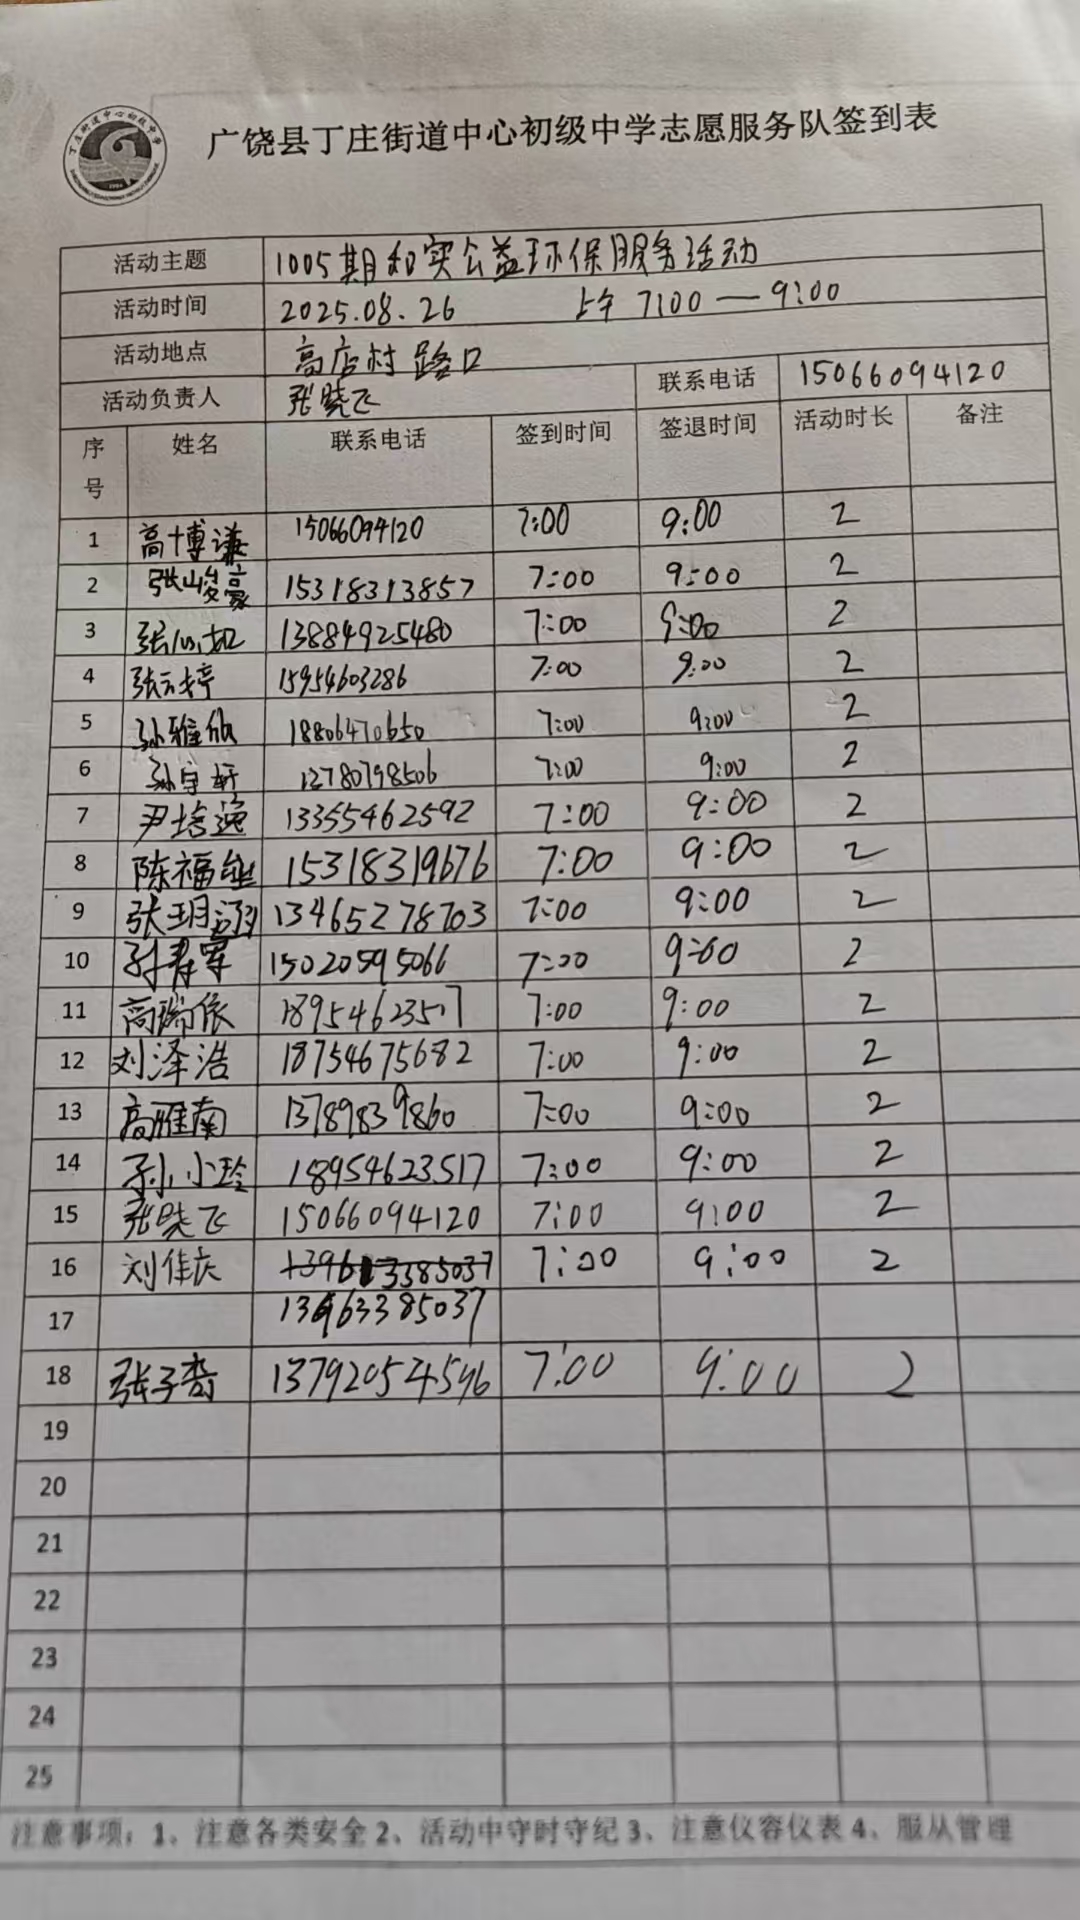 广饶县丁庄街道中心初级中学志愿服务队签到表
活动主题 1005期和实公益环保服务活动
活动时间 2025.08.26 上午 7:00 — 9:00
活动地点 高店村路口
活动负责人 张晓飞 联系电话 15066094120
序号 姓名 联系电话 签到时间 签退时间 活动时长 备注
1 高博谦 15066094120 7:00 9:00 2
2 张峻豪 15318313857 7:00 9:00 2
3 张心如 13884925480 7:00 9:00 2
4 张云婷 15954603286 7:00 9:00 2
5 孙雅欣 18806470650 7:00 9:00 2
6 孙宇轩 13780798506 7:00 9:00 2
7 尹培逸 13355462592 7:00 9:00 2
8 陈福 15318319676 7:00 9:00 2
9 张玥涵 13465278703 7:00 9:00 2
10 孙寿军 15020595066 7:00 9:00 2
11 高瑞依 18954623517 7:00 9:00 2
12 刘泽浩 18754675682 7:00 9:00 2
13 高雁南 13789839860 7:00 9:00 2
14 孙小玲 18954623517 7:00 9:00 2
15 张晓飞 15066094120 7:00 9:00 2
16 刘佳庆 13963385037 7:00 9:00 2
17 13963385037
18 张子 13792054596 7:00 9:00 2
19
20
21
22
23
24
25
注意事项：1、注意各类安全 2、活动中守时守纪 3、注意仪容仪表 4、服从管理